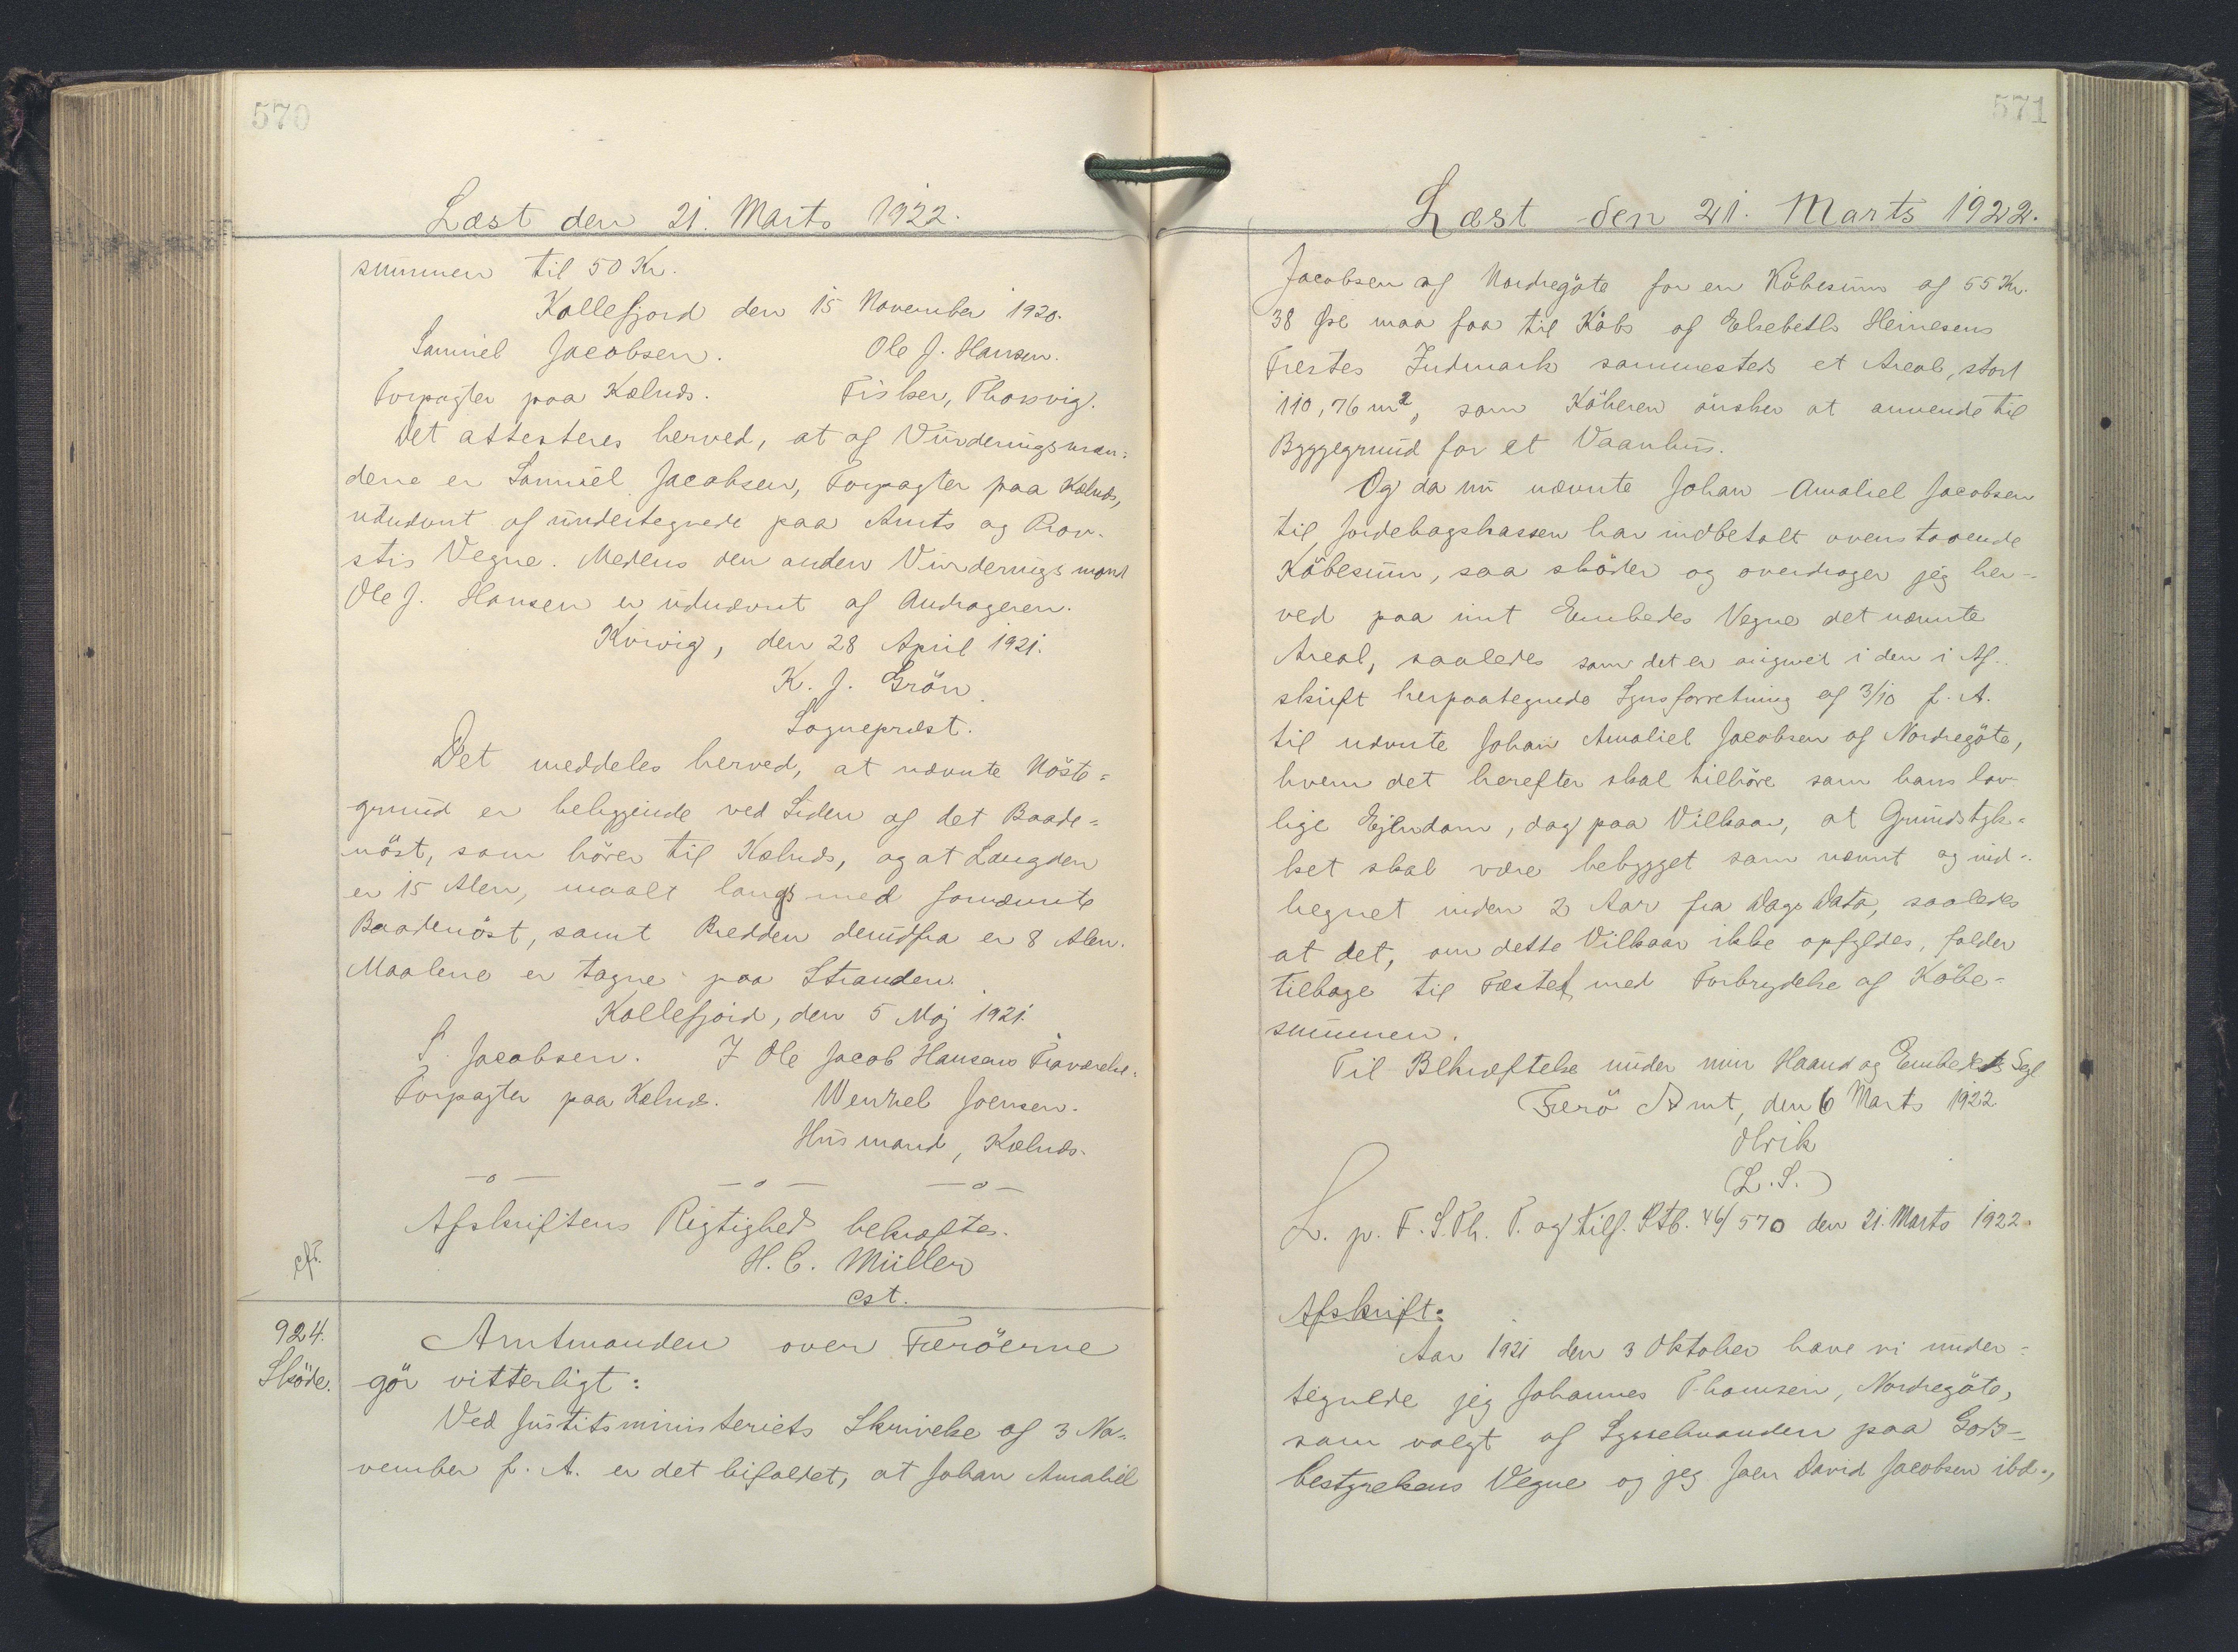 570
Læst den 21. Marts 1922.
summen til 50 Kr.
Kollefjord den 15 November 1920.
Samuel Jacobsen. Ole J. Hansen.
Forpagter paa Kælnes. Fisker, Thorsvig.
Det attesteres herved, at af Vurderingsmæn-
dene er Samuel Jacobsen, Forpagter paa Kælnes,
udnævnt af undertegnede paa Amts og Prov-
stis Vegne. Medens den anden Vurderingsmand
Ole J. Hansen er udnævnt af Andrageren.
Kvivig, den 28 April 1921.
K. J. Grön.
Sognepræst.
Det meddeles herved, at nævnte Nöste-
grund er beliggende ved Siden af det Baade-
nöst, som hörer til Kælnes, og at Længden
er 15 Alen, maalt langs med fornævnte
Baadenöst, samt Bredden derudfra er 8 Alen.
Maalene er tagne paa Stranden.
Kollefjord, den 5 Maj 1921.
S. Jacobsen. I Ole Jacob Hansens Fraværelse.
Forpagter paa Kælnes. Wenzel Joensen.
Husmand, Kælnes.
—o— —o— —o—
Afskriftens Rigtighed bekræftes.
H. C. Müller
cst.
cft.
924. Amtmanden over Færöerne
Sköde. gör vitterligt:
Ved Justitsministeriets Skrivelse af 3 No-
vember f. A. er det bifaldet, at Johan Amaliel
571
Læst den 21. Marts 1922.
Jacobsen af Nordregöte for en Köbesum af 55 Kr.
38 Øre maa faa til Köbs af Elsebeth Heinesens
Fæstes Indmark sammesteds et Areal, stort
110,76 m², som Köberen önsker at anvende til
Byggegrund for et Vaanhus.
Og da nu nævnte Johan Amaliel Jacobsen
til Jordebogskassen har indbetalt ovenstaaende
Köbesum, saa sköder og overdrager jeg her-
ved paa mit Embedes Vegne det nævnte
Areal, saaledes som det er angivet i den i Af-
skrift herpaategnede Synsforretning af 3/10 f. A.
til nævnte Johan Amaliel Jacobsen af Nordregöte,
hvem det herefter skal tilhöre som hans lov-
lige Ejendom, dog paa Vilkaar, at Grundstyk-
ket skal være bebygget som nævnt og ind-
hegnet inden 2 Aar fra Dags Dato, saaledes
at det, om dette Vilkaar ikke opfyldes, falder
tilbage til Fæstet med Forbrydelse af Köbe-
summen.
Til Bekræftelse under min Haand og Embedets Segl
Færö Amt, den 6 Marts 1922
Olrik
(L.S.)
L. p. F. S. Th. P. og tilf. Ktb. 46/570 den 21. Marts 1922.
Afskrift.
Aar 1921 den 3 Oktober have vi under-
tegnede jeg Johannes Thomsen, Nordregöte,
som valgt af Sysselmanden paa Gods-
bestyrelsens Vegne og jeg Joen David Jacobsen ibd.,